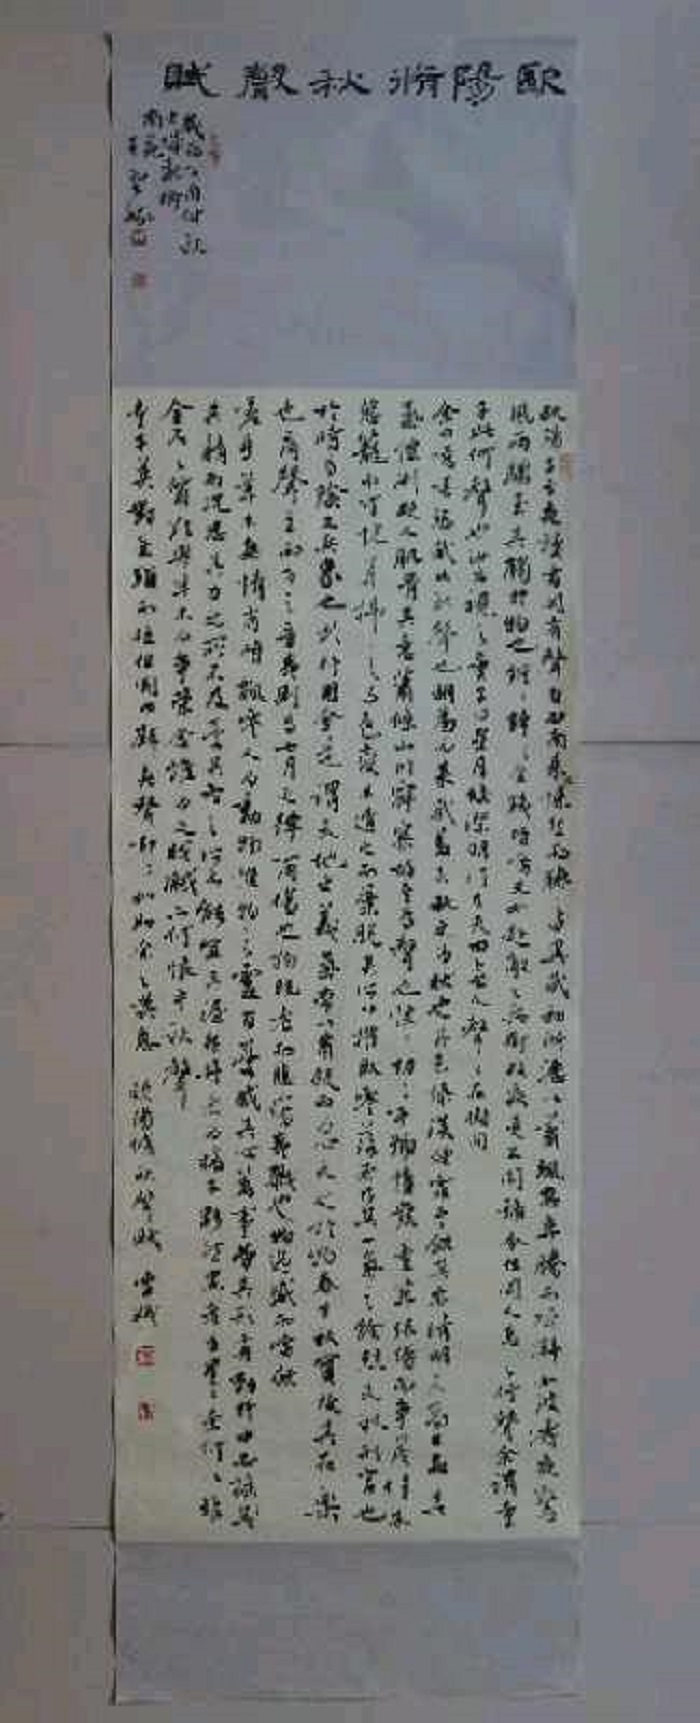 歐陽脩秋聲賦
歐陽子方夜讀書聞有聲自西南來悚然而聽之曰異哉初淅瀝以蕭颯忽奔騰而砰湃如波濤夜驚
風雨驟至其觸於物也鏦鏦錚錚金鐵皆鳴又如赴敵之兵銜枚疾走不聞號令但聞人馬之行聲余謂童
子此何聲也汝出視之童子曰星月皎潔明河在天四無人聲聲在樹間
余曰噫嘻悲哉此秋聲也胡為而來哉蓋夫秋之為狀也其色慘淡煙霏雲斂其容清明天高日晶其
氣慄冽砭人肌骨其意蕭條山川寂寥故其為聲也淒淒切切呼號憤發豐草綠縟而爭茂佳木
蔥蘢而可悅草拂之而色變木遭之而葉脫其所以摧敗零落者乃其一氣之餘烈夫秋刑官也
於時為陰又兵象也於行用金是謂天地之義氣常以肅殺而為心天之於物春生秋實故其在樂
也商聲主西方之音夷則為七月之律商傷也物既老而悲傷夷戮也物過盛而當殺
嗟乎草木無情有時飄零人為動物惟物之靈百憂感其心萬事勞其形有動於中必搖
其精而況思其力之所不及憂其智之所不能宜其渥然丹者為槁木黟然黑者為星星奈何以非
金石之質欲與草木而爭榮念誰為之戕賊亦何恨乎秋聲
童子莫對垂頭而睡但聞四壁蟲聲唧唧如助余之歎息 歐陽脩秋聲賦